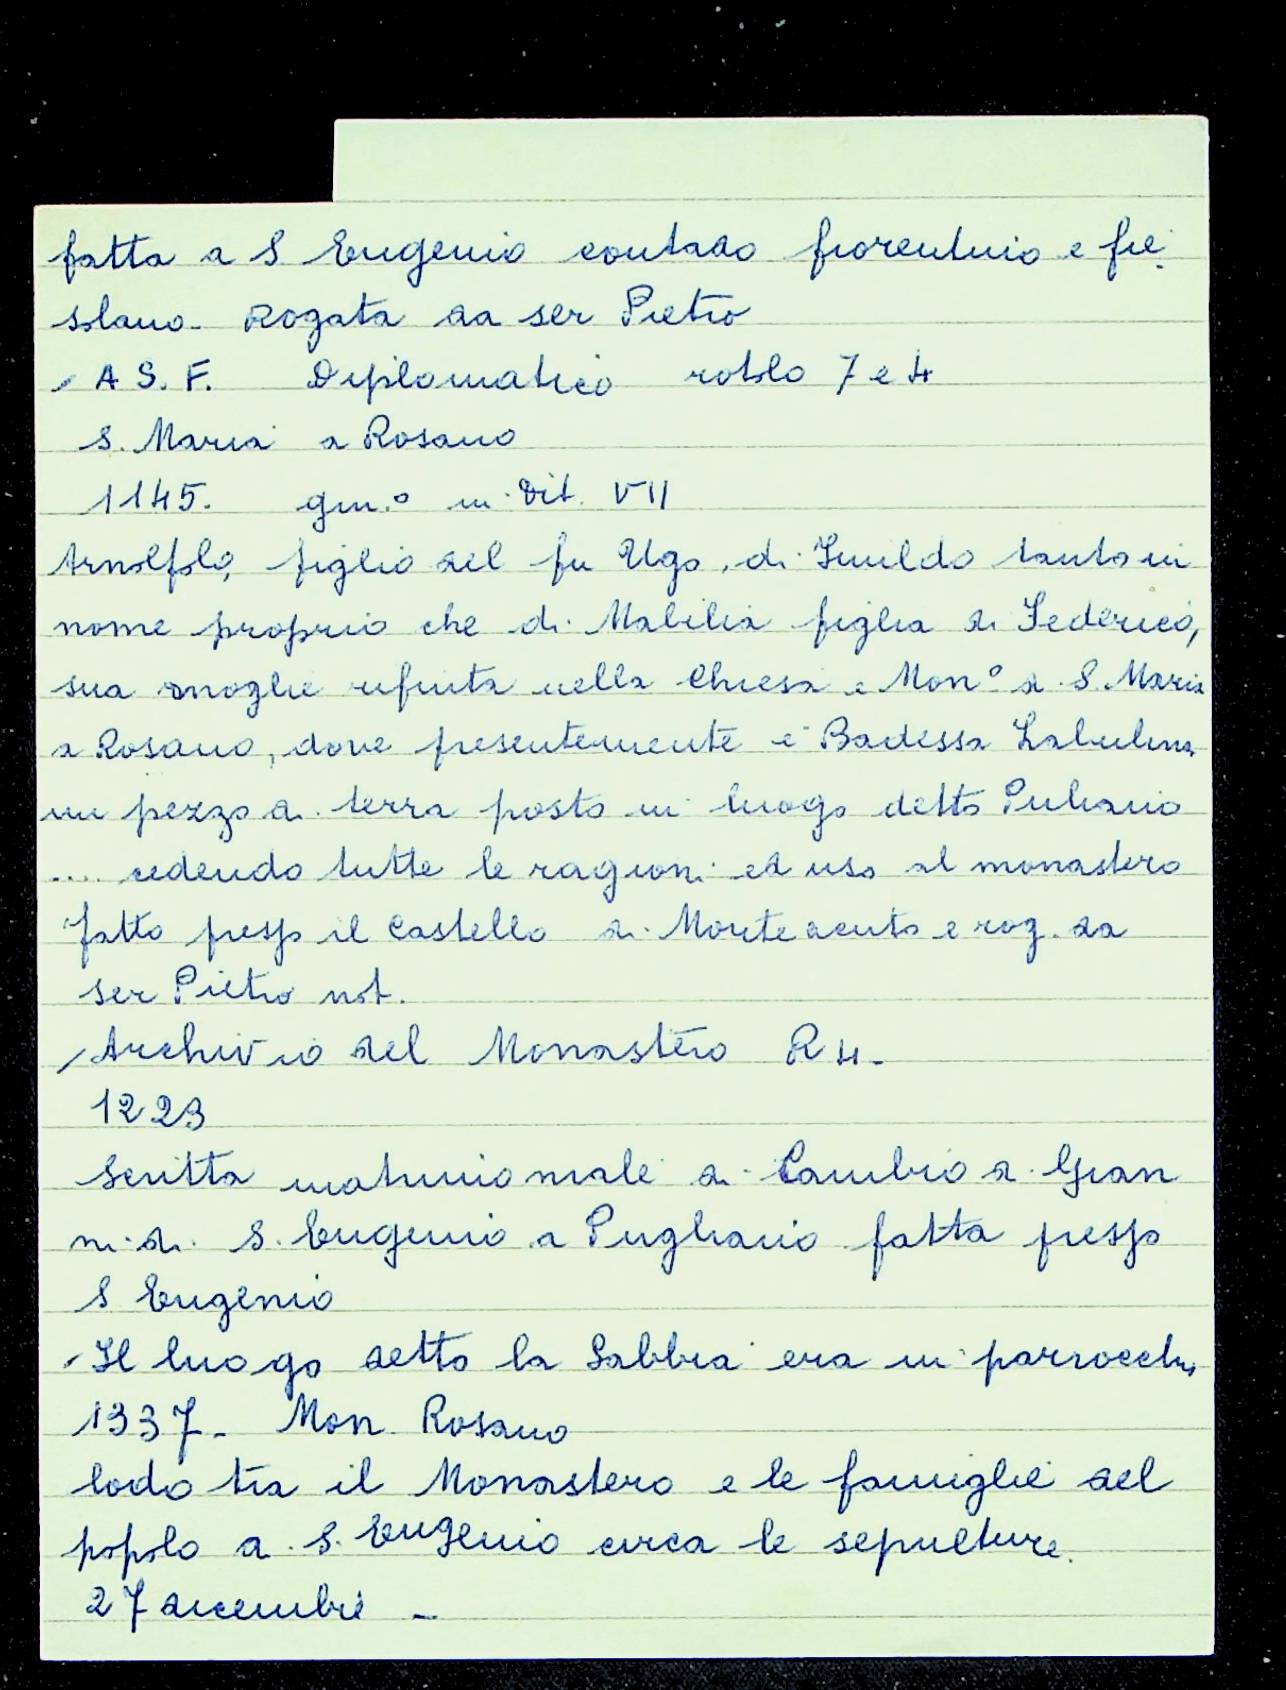 fatta a S Eugenio contado fiorentino e fie
solano. Rogata da ser Pietro
A S. F. Diplomatico rotolo 7 e 4
S. Maria a Rosano
1145. gen.º indit. VII
Arnolfolo, figlio del fu Ugo, di Imildo tanto in
nome proprio che di Mabilia figlia di Federico,
sua moglie rifiuta nella Chiesa e Mon.º di S. Maria
a Rosano, dove presentemente è Badessa
un pezzo di terra posto in luogo detto Puliano
.... cedendo tutte le ragioni ed uso al monastero
fatto presso il Castello di Monteacuto e rog. da
ser Pietro not.
Archivio del Monastero R 4.
1223
Scritta matrimoniale di Cambio di Gian
ni di S. Eugenio a Pugliano fatta presso
S Eugenio
Il luogo detto la Sabbia era in parrocchia
1337. Mon. Rosano
lodo tra il Monastero e le famiglie del
popolo di S. Eugenio circa le sepolture.
27 dicembre -